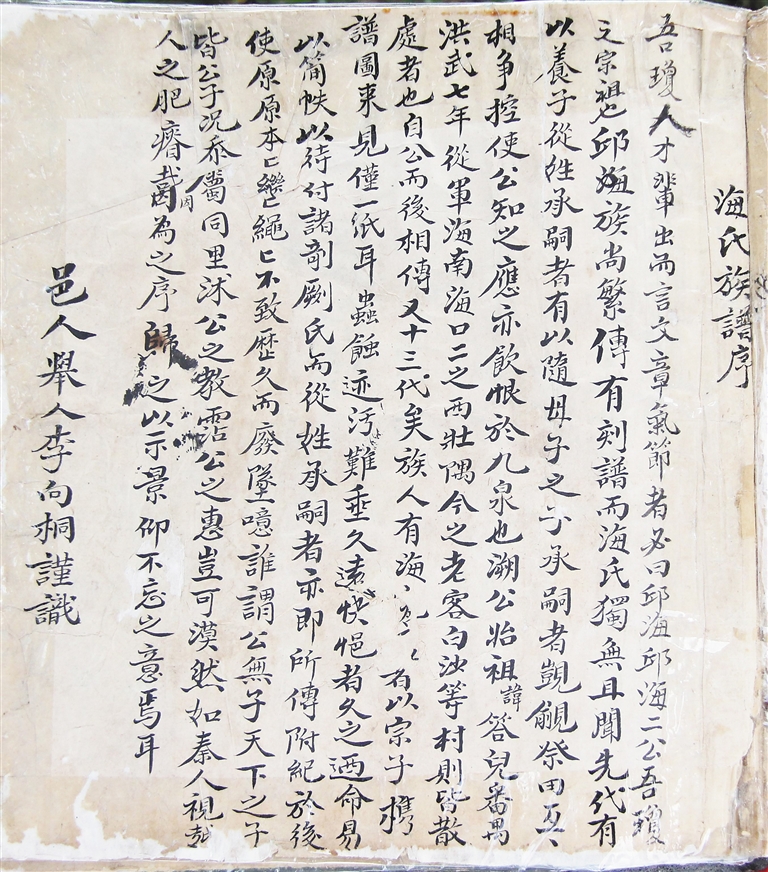 海氏族譜序
吾瓊人才輩出而言文章氣節者必曰邱海邱海二公吾瓊
之宗祖也邱海族尚繁傳有刻譜而海氏獨無且聞先代有
以養子從姓承嗣者有以隨母子之子承嗣者覬覦祭田互
相爭控使公知之應亦飲恨於九泉也溯公始祖諱答兒番禺
洪武七年從軍海南海口二之西壯隅今之老客白沙等村則皆散
處者也自公而後相傳又十三代矣族人有海 有以宗子携
譜圖來見僅一紙耳蟲蝕迹汚難垂久遠快悒者久之迺命易
以簡帙以待付諸剞劂氏而從姓承嗣者亦即所傳附紀於後
使原原本〻繼〻繩〻不致歷久而廢墜噫誰謂公無子天下之子
皆公子況忝屬同里沐公之教霑公之惠豈可漠然如秦人視越
人之肥瘠哉因為之序歸之以示景仰不忘之意焉耳
邑人舉人李向桐謹識